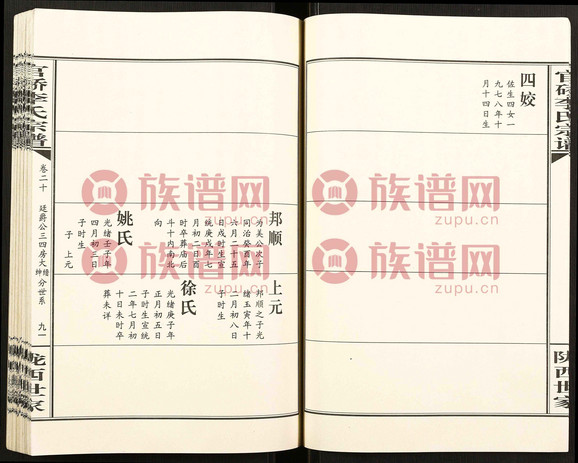 官硚李氏宗谱
四姣
佐生四女一
九七八年十
月十四日生
陇西世家
族谱网
zupu.cn
族谱网
zupu.cn
族谱网
zupu.cn
族谱网
zupu.cn
邦顺
为美公次子
同治癸酉年
六月二十五
日戌时生宣
统庚戌年七
月初二日酉
时卒葬庙后
斗十内南北
向
姚氏
光绪壬子年
四月初三日
子时生
子 上元
上元
邦顺之子光
绪壬寅年十
二月初八日
子时生
徐氏
光绪庚子年
正月初五日
子时生宣统
二年七月初
十日未时卒
葬未详
官硚李氏宗谱
卷二十
廷爵公三四房大绅绪分世系
九一
陇西世家